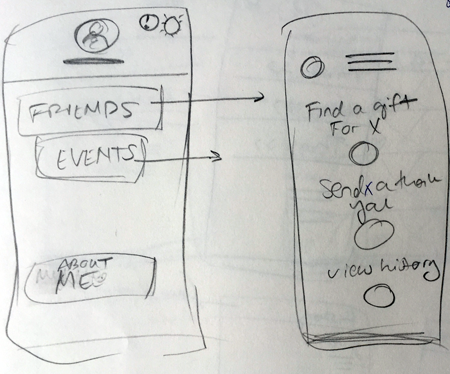 FRIENDS
EVENTS
ABOUT
ME
Find a gift
For X
Send X a thank
you
view history